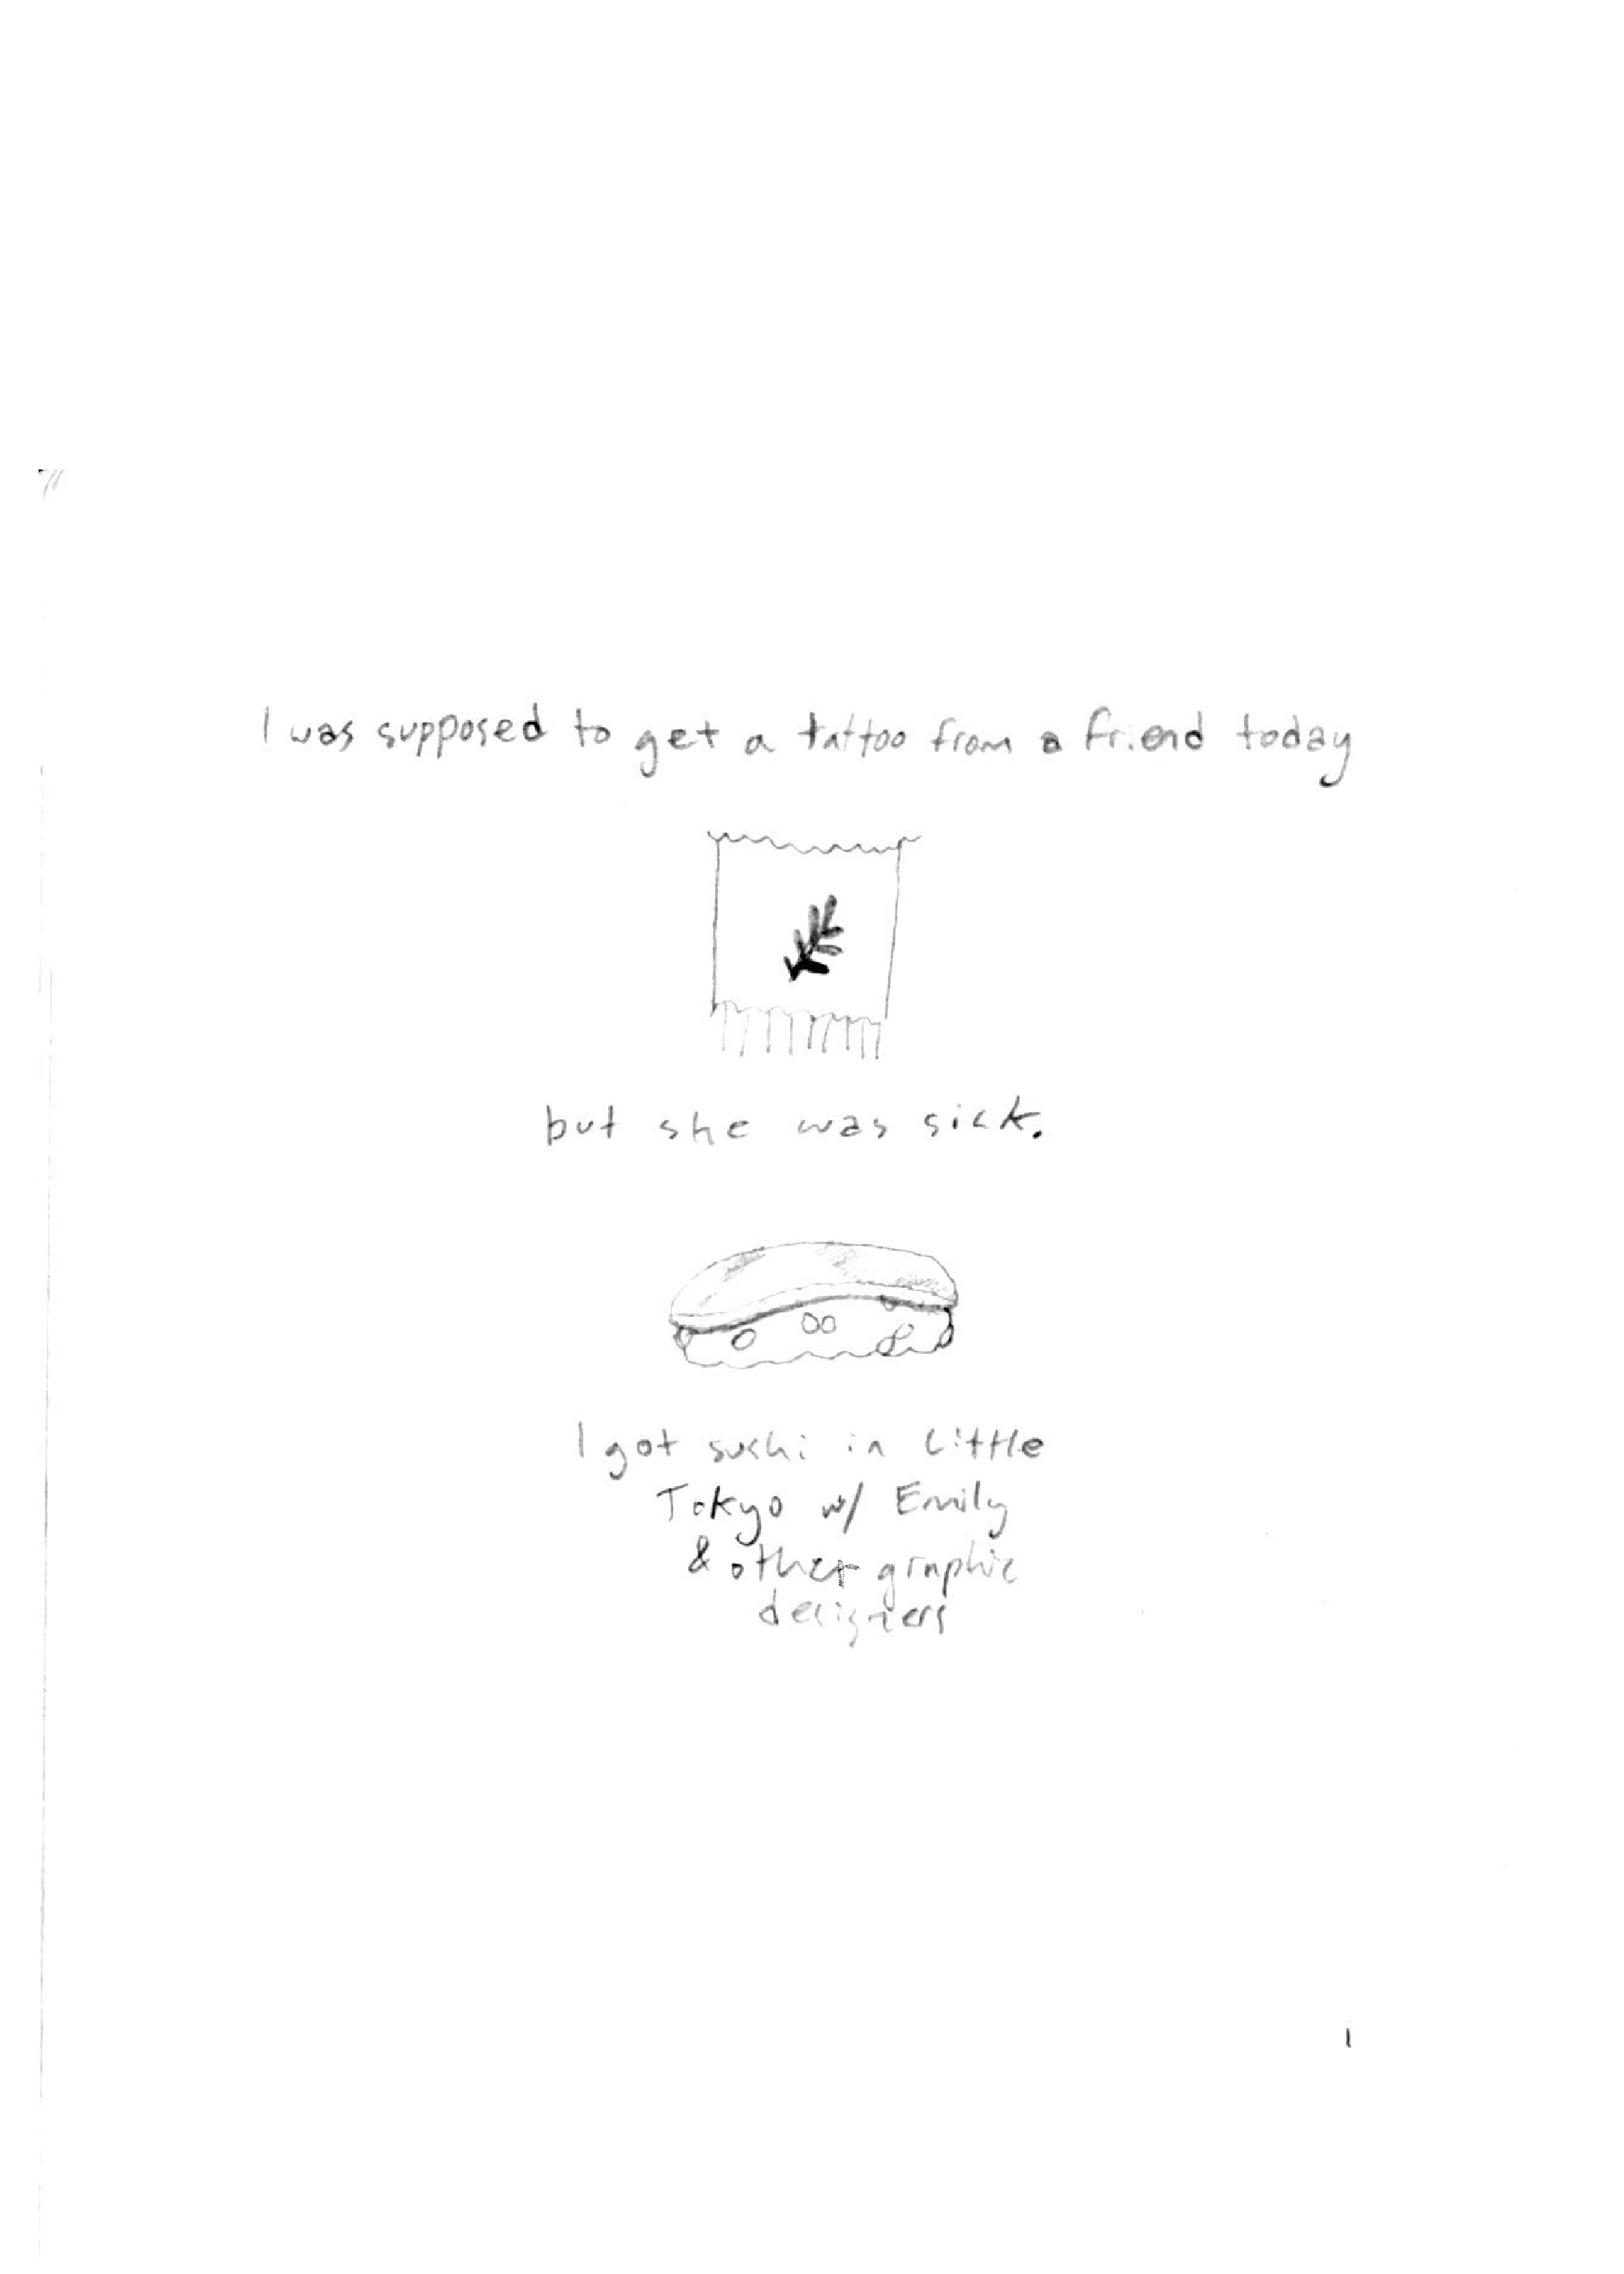 I was supposed to get a tattoo from a friend today
but she was sick.
I got sushi in Little
Tokyo w/ Emily
& other graphic
designers
1